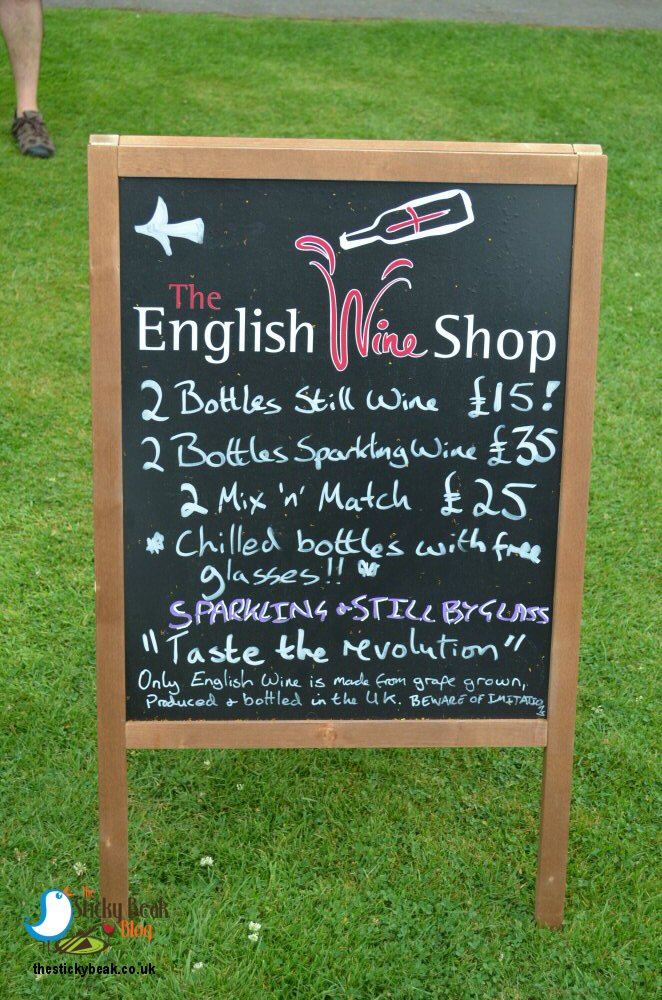 The
English Wine Shop
2 Bottles Still Wine £15!
2 Bottles Sparkling Wine £35
2 Mix 'n' Match £25
* Chilled bottles with free
glasses!! *
SPARKLING & STILL BY GLASS
"Taste the revolution"
Only English Wine is made from grape grown,
Produced & bottled in the UK. BEWARE OF IMITATIONS
The
Sticky Beak
Blog
thestickybeak.co.uk